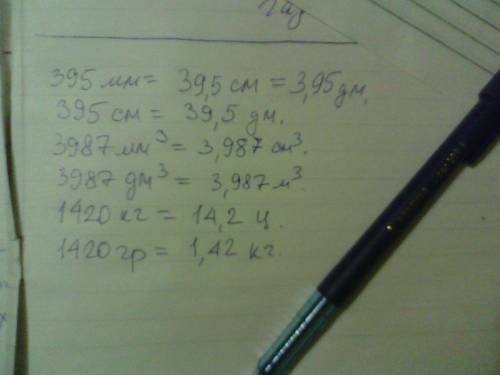 газ
395 мм = 39,5 см = 3,95 дм.
395 см = 39,5 дм.
3987 мм³ = 3,987 см³.
3987 дм³ = 3,987 м³.
1420 кг = 14,2 ц.
1420 гр = 1,42 кг.